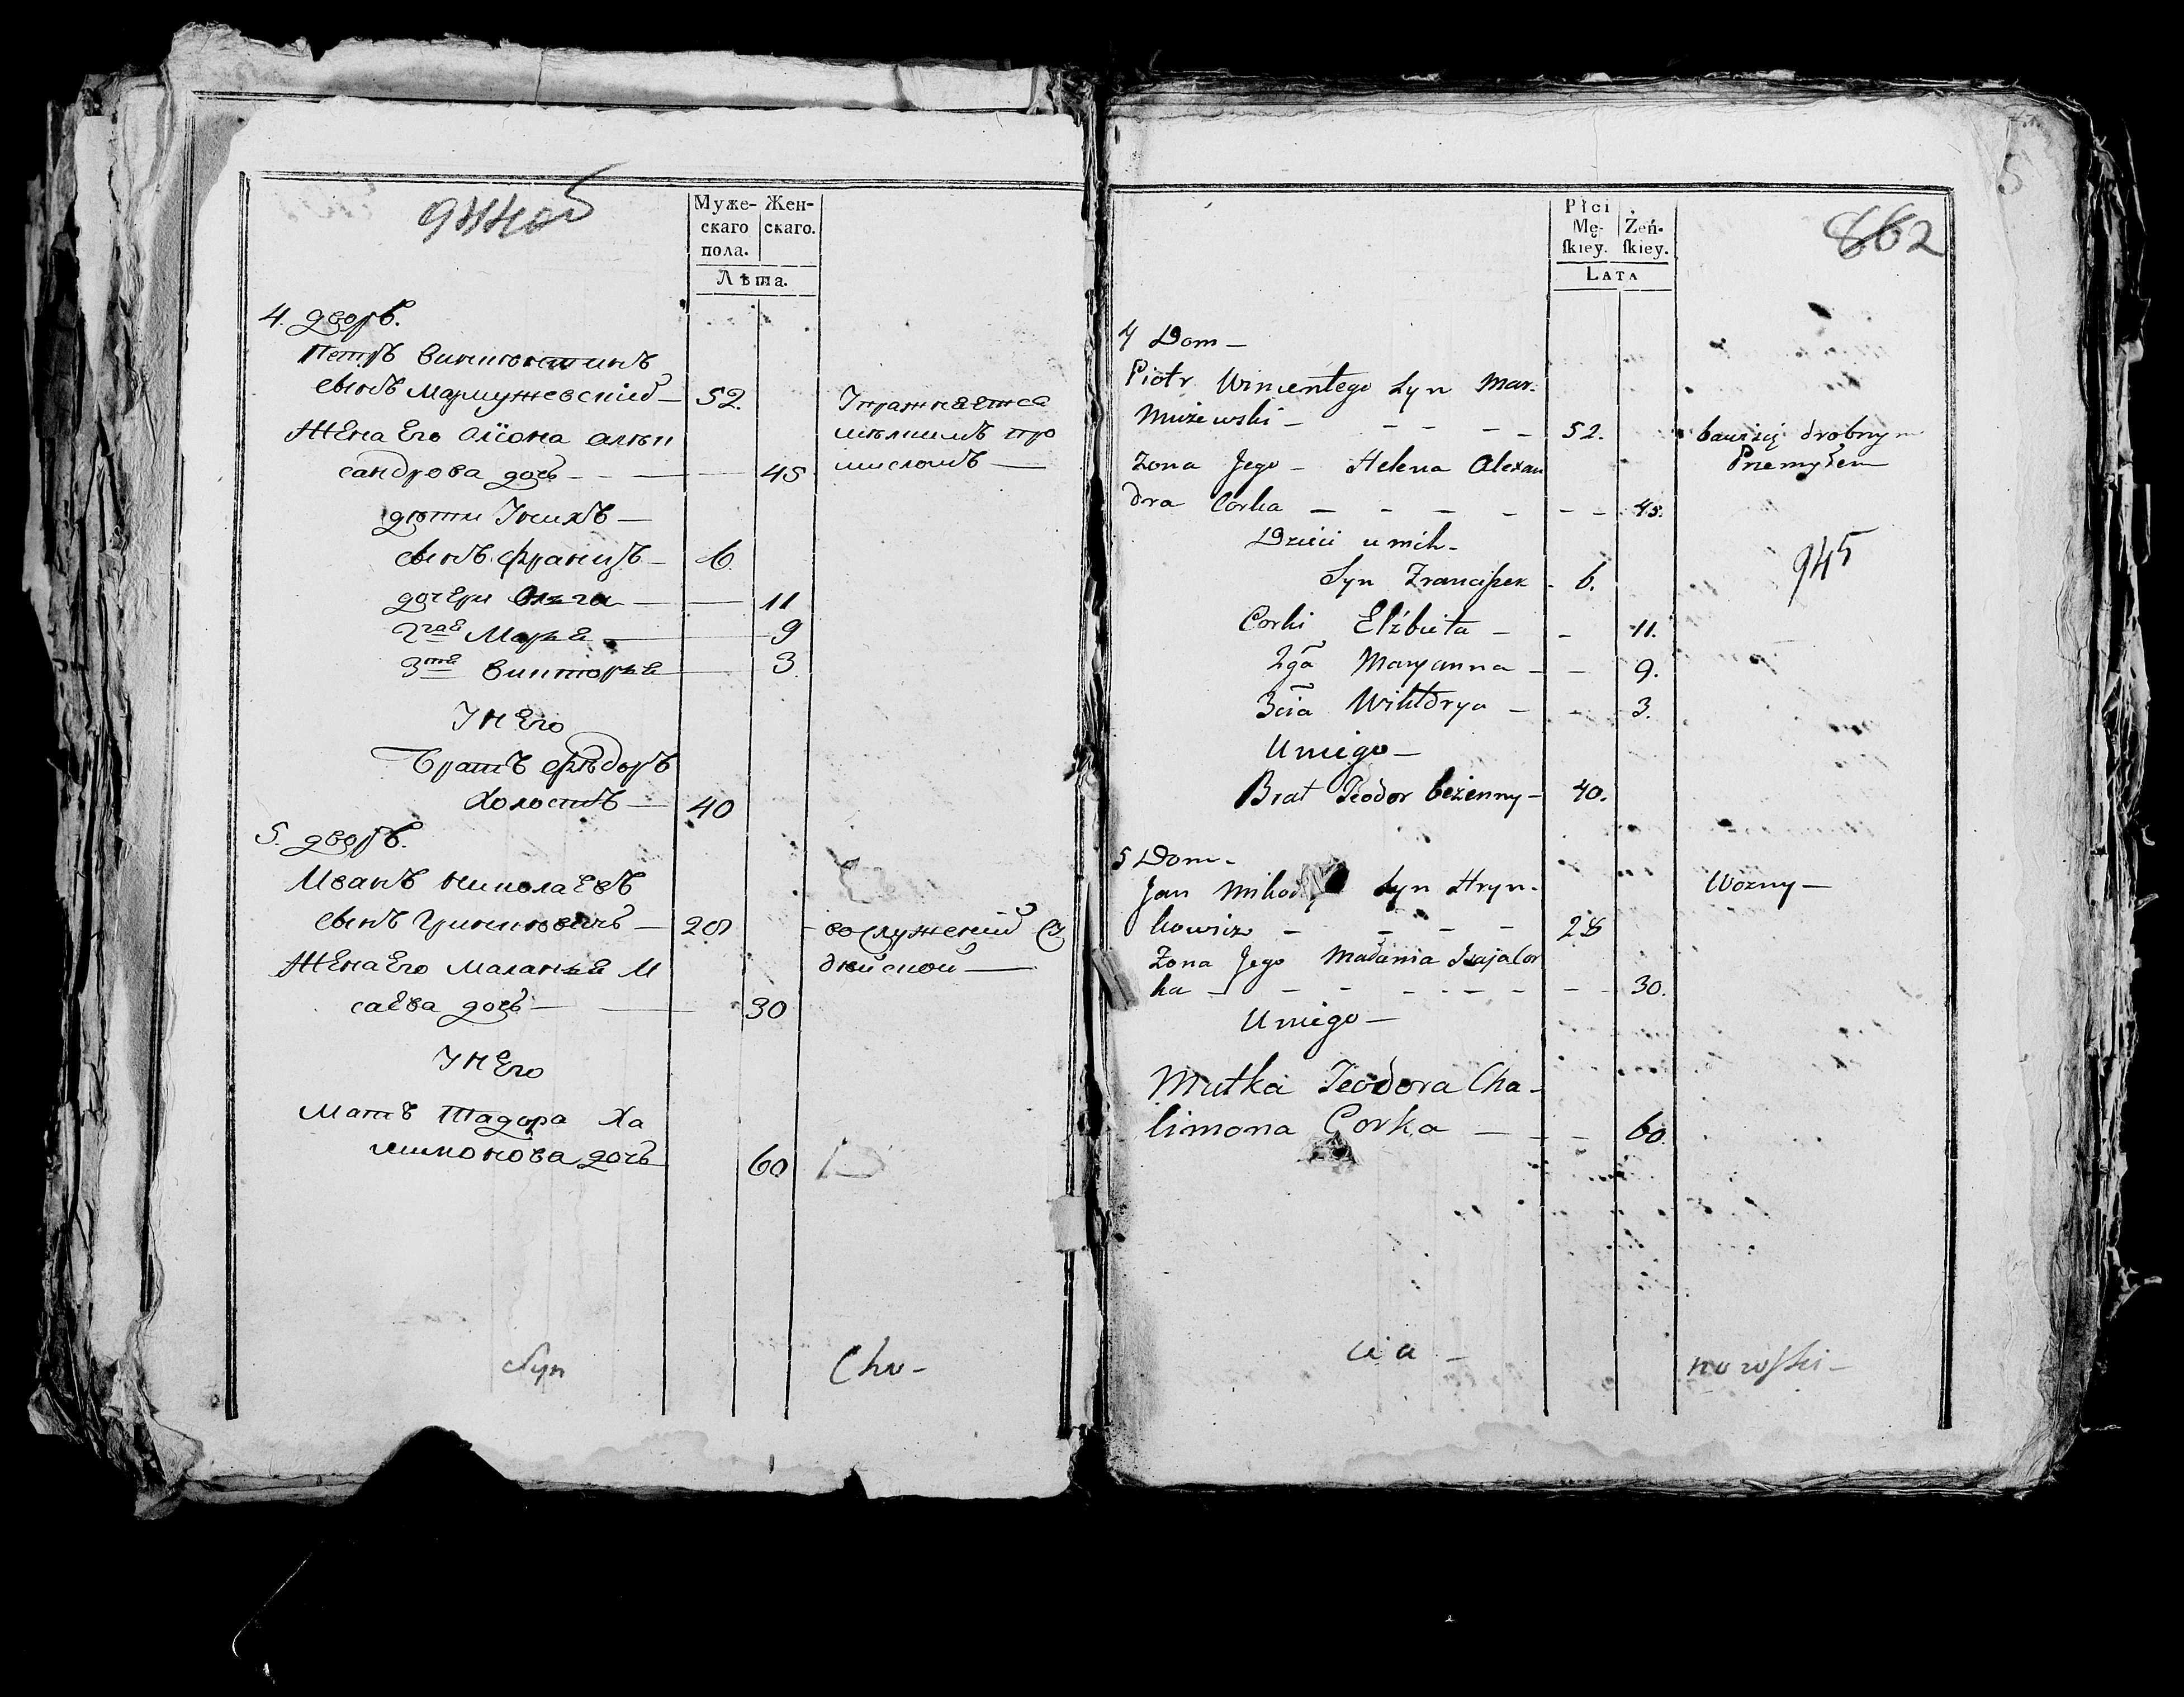 944об
Муже-
скаго
пола.
Жен-
скаго.
Лѣта.
4. дворъ.
Петръ Викентинъ
сынъ Мармужевскій — 52.
Упражняется
мелкимъ про
мысломъ —
Жена Его Олiона Алек
сандрова дочь — 45
дѣти Унихъ —
сынъ Францъ — 6.
дочери Ольга — 11
2гая Марья — 9
3тя Викторья — 3.
У Него
Братъ Ѳедоръ
Холостъ — 40
5. дворъ.
Иванъ Николаевъ
сынъ Гринкевичъ — 28
Возслужений Су
дейской —
Жена Его Маланья И
саева дочь — 30
У Него
Мать Тадора Ха
лимонова дочь 60
Syn
Cho-
5
862
Płci
Mę-
ſkiey.
Żeń-
ſkiey.
Lata
4 Dom —
Piotr Wincentego Syn Mar-
mużewski — 52.
bawi się drobnym
Przemysłem
Zona Jego — Helena Alexan
dra Corka — 45.
Dzieci u nich -
Syn Franciszek - 6.
945
Corki Elżbieta — 11.
2ga Maryanna — 9.
3cia Wiktorya — 3.
U niego —
Brat Teodor beżenny — 40.
5 Dom -
Jan Syn Hryn-
kowicz — 28
Wozny —
Zona Jego Małania Isaja Cor
ka — 30.
U niego —
Matka Teodora Cha-
limona Corka — 60.
cia —
nowſki —